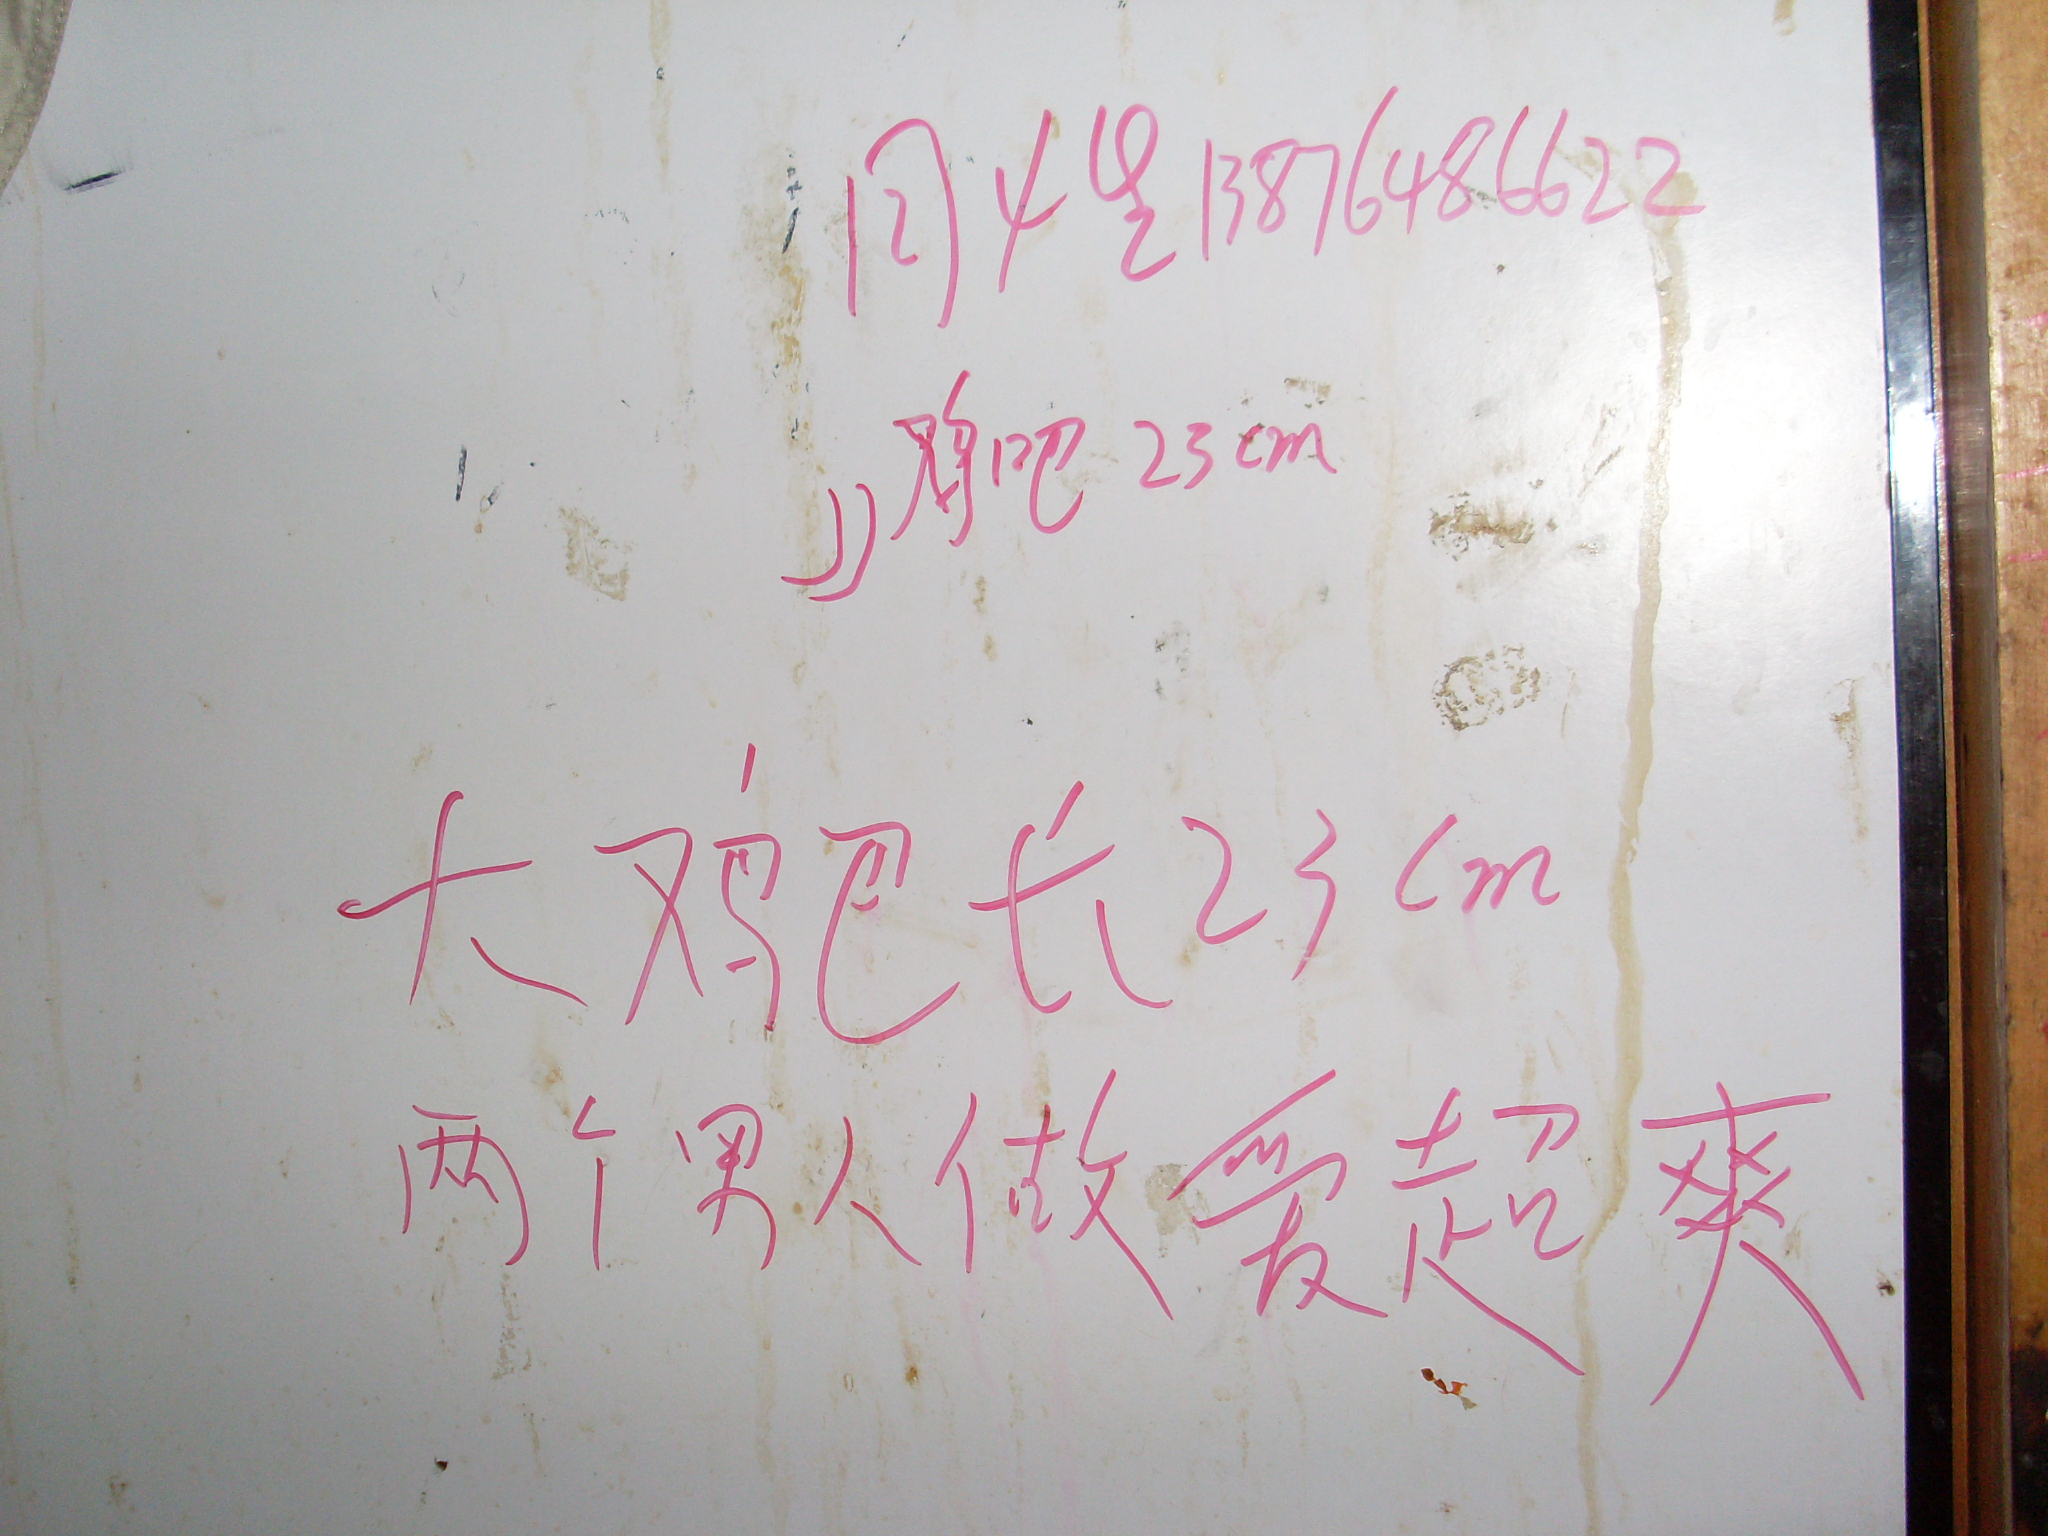 同心星13876486622
鸡吧23cm
大鸡巴长23cm
两个男人做爱超爽